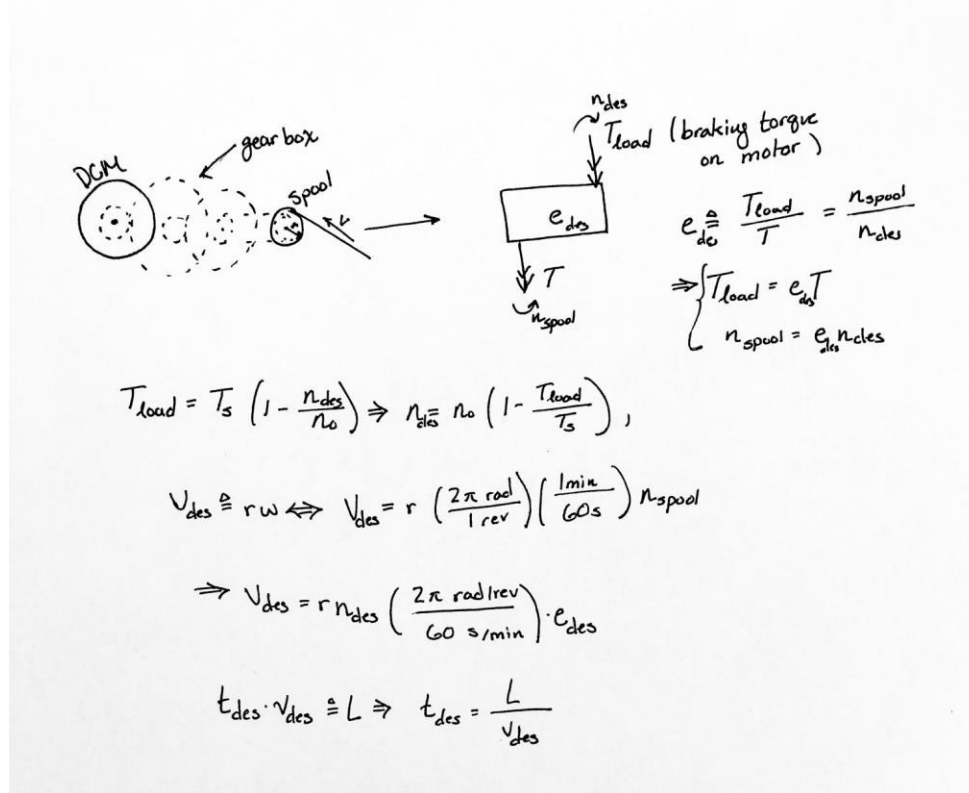 gear box
DCM
spool
r
n_des
T_load (braking torque
on motor)
e_des
T
n_spool
e_des ≜ T_load/T = n_spool/n_des
⇒ { T_load = e_des T
n_spool = e_des n_des
T_load = T_s (1 - n_des/n_o) ⇒ n_des = n_o (1 - T_load/T_s),
V_des ≜ rω ⇔ V_des = r (2π rad/1 rev)(1min/60s) n_spool
⇒ V_des = r n_des (2π rad/rev / 60 s/min) · e_des
t_des · v_des ≜ L ⇒ t_des = L/v_des